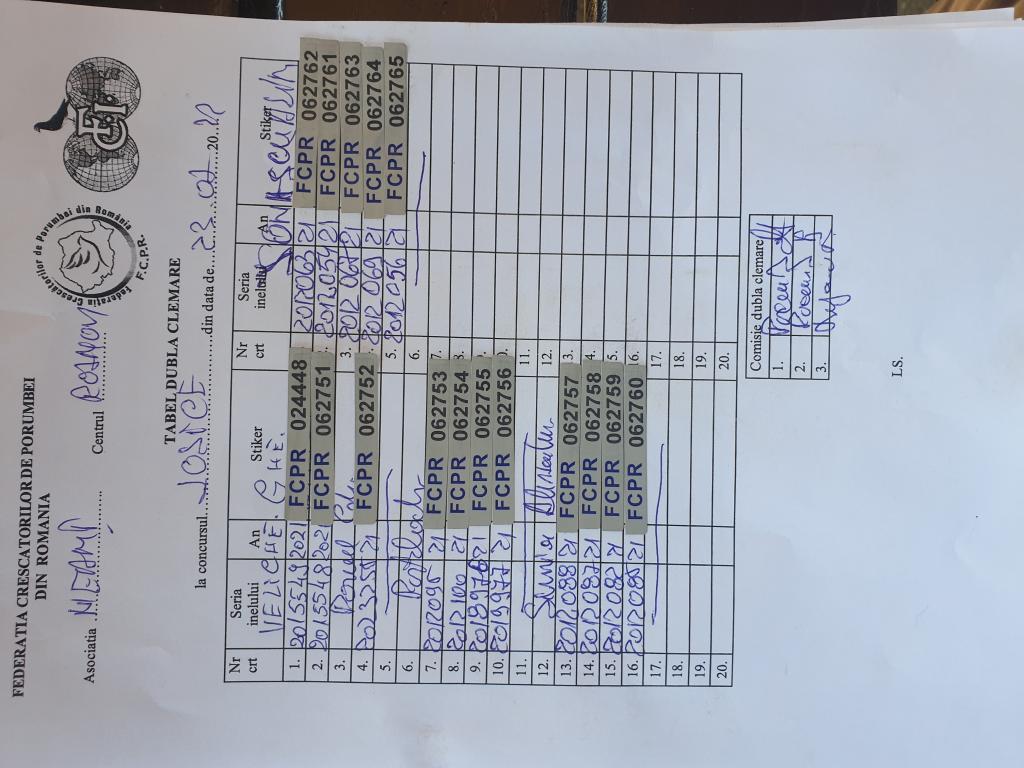 FEDERATIA CRESCATORILOR DE PORUMBEI
DIN ROMANIA
Federatia Crescatorilor de Porumbei din România
F.C.P.R.
FCI
Asociatia NEAMȚ Centrul ROZNOV
TABEL DUBLA CLEMARE
la concursul din data de 23 07 20 22
Nr crt Seria inelului An Stiker
VELICHE GHE.
1. 2015549 2021 FCPR 024448
2. 2015548 2021 FCPR 062751
3.
4. 2023755 21 FCPR 062752
5.
6.
7. 2012095 21 FCPR 062753
8. 2012100 21 FCPR 062754
9. 21 FCPR 062755
10. 2013977 21 FCPR 062756
11.
12.
13. 2012088 21 FCPR 062757
14. 2012087 21 FCPR 062758
15. 2012082 21 FCPR 062759
16. 2012085 21 FCPR 062760
17.
18.
19.
20.
Nr crt Seria inelului An Stiker
2012063 21 FCPR 062762
2012054 21 FCPR 062761
3. 2012067 21 FCPR 062763
4. 2012069 21 FCPR 062764
5. 2012056 21 FCPR 062765
6.
7.
8.
9.
0.
11.
12.
3.
4.
5.
6.
17.
18.
19.
20.
Comisie dubla clemare
1.
2.
3.
LS.